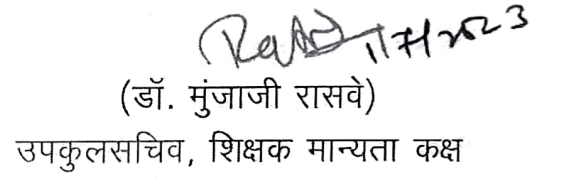 11/7/2023
(डॉ. मुंजाजी रासवे)
उपकुलसचिव, शिक्षक मान्यता कक्ष